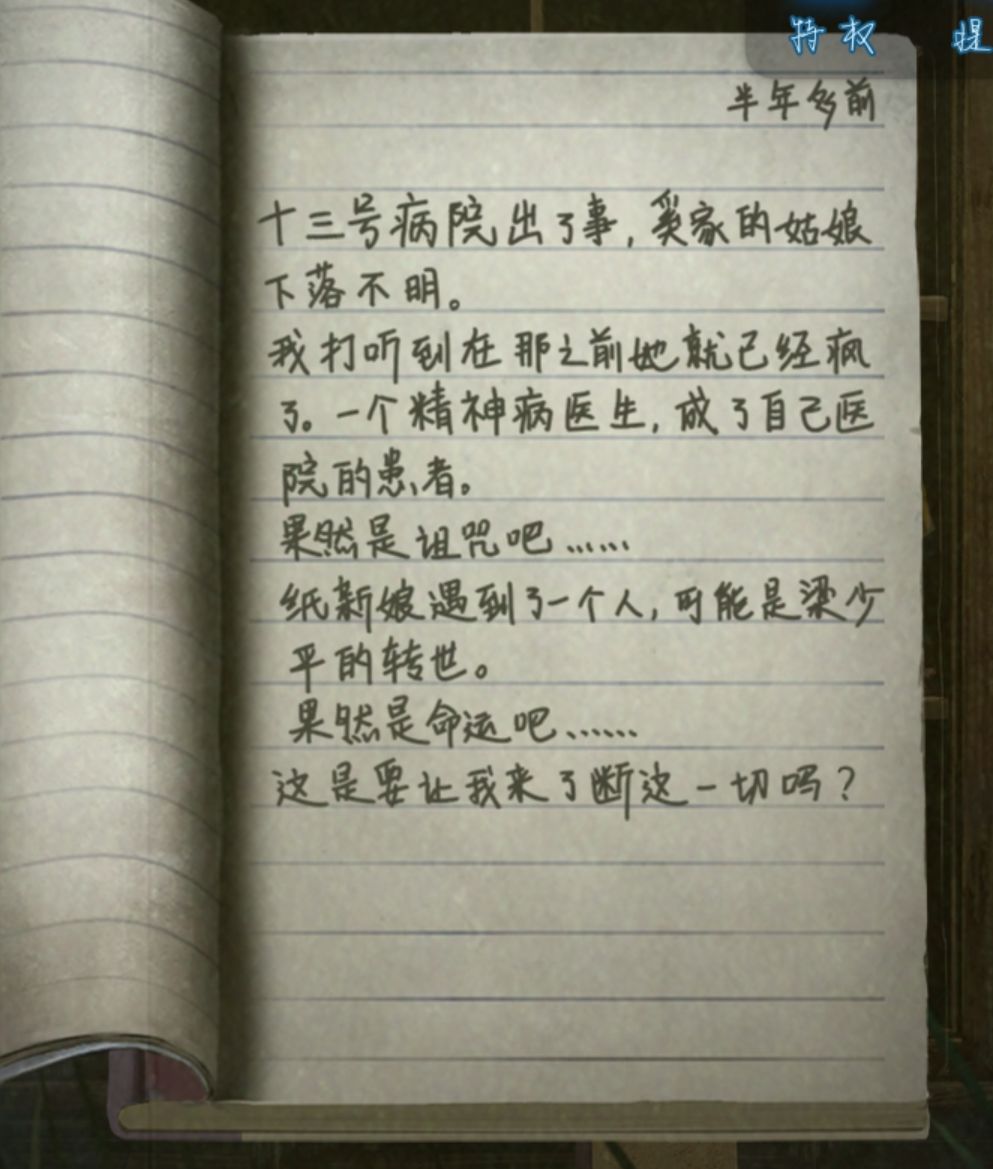 特权 提
半年多前
十三号病院出了事,奚家的姑娘
下落不明。
我打听到在那之前她就已经疯
了。一个精神病医生,成了自己医
院的患者。
果然是诅咒吧……
纸新娘遇到了一个人,可能是梁少
平的转世。
果然是命运吧……
这是要让我来了断这一切吗?